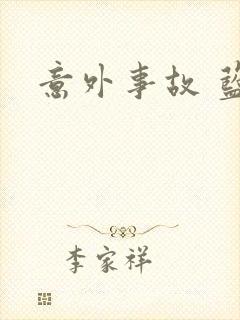 意外事故
李家祥